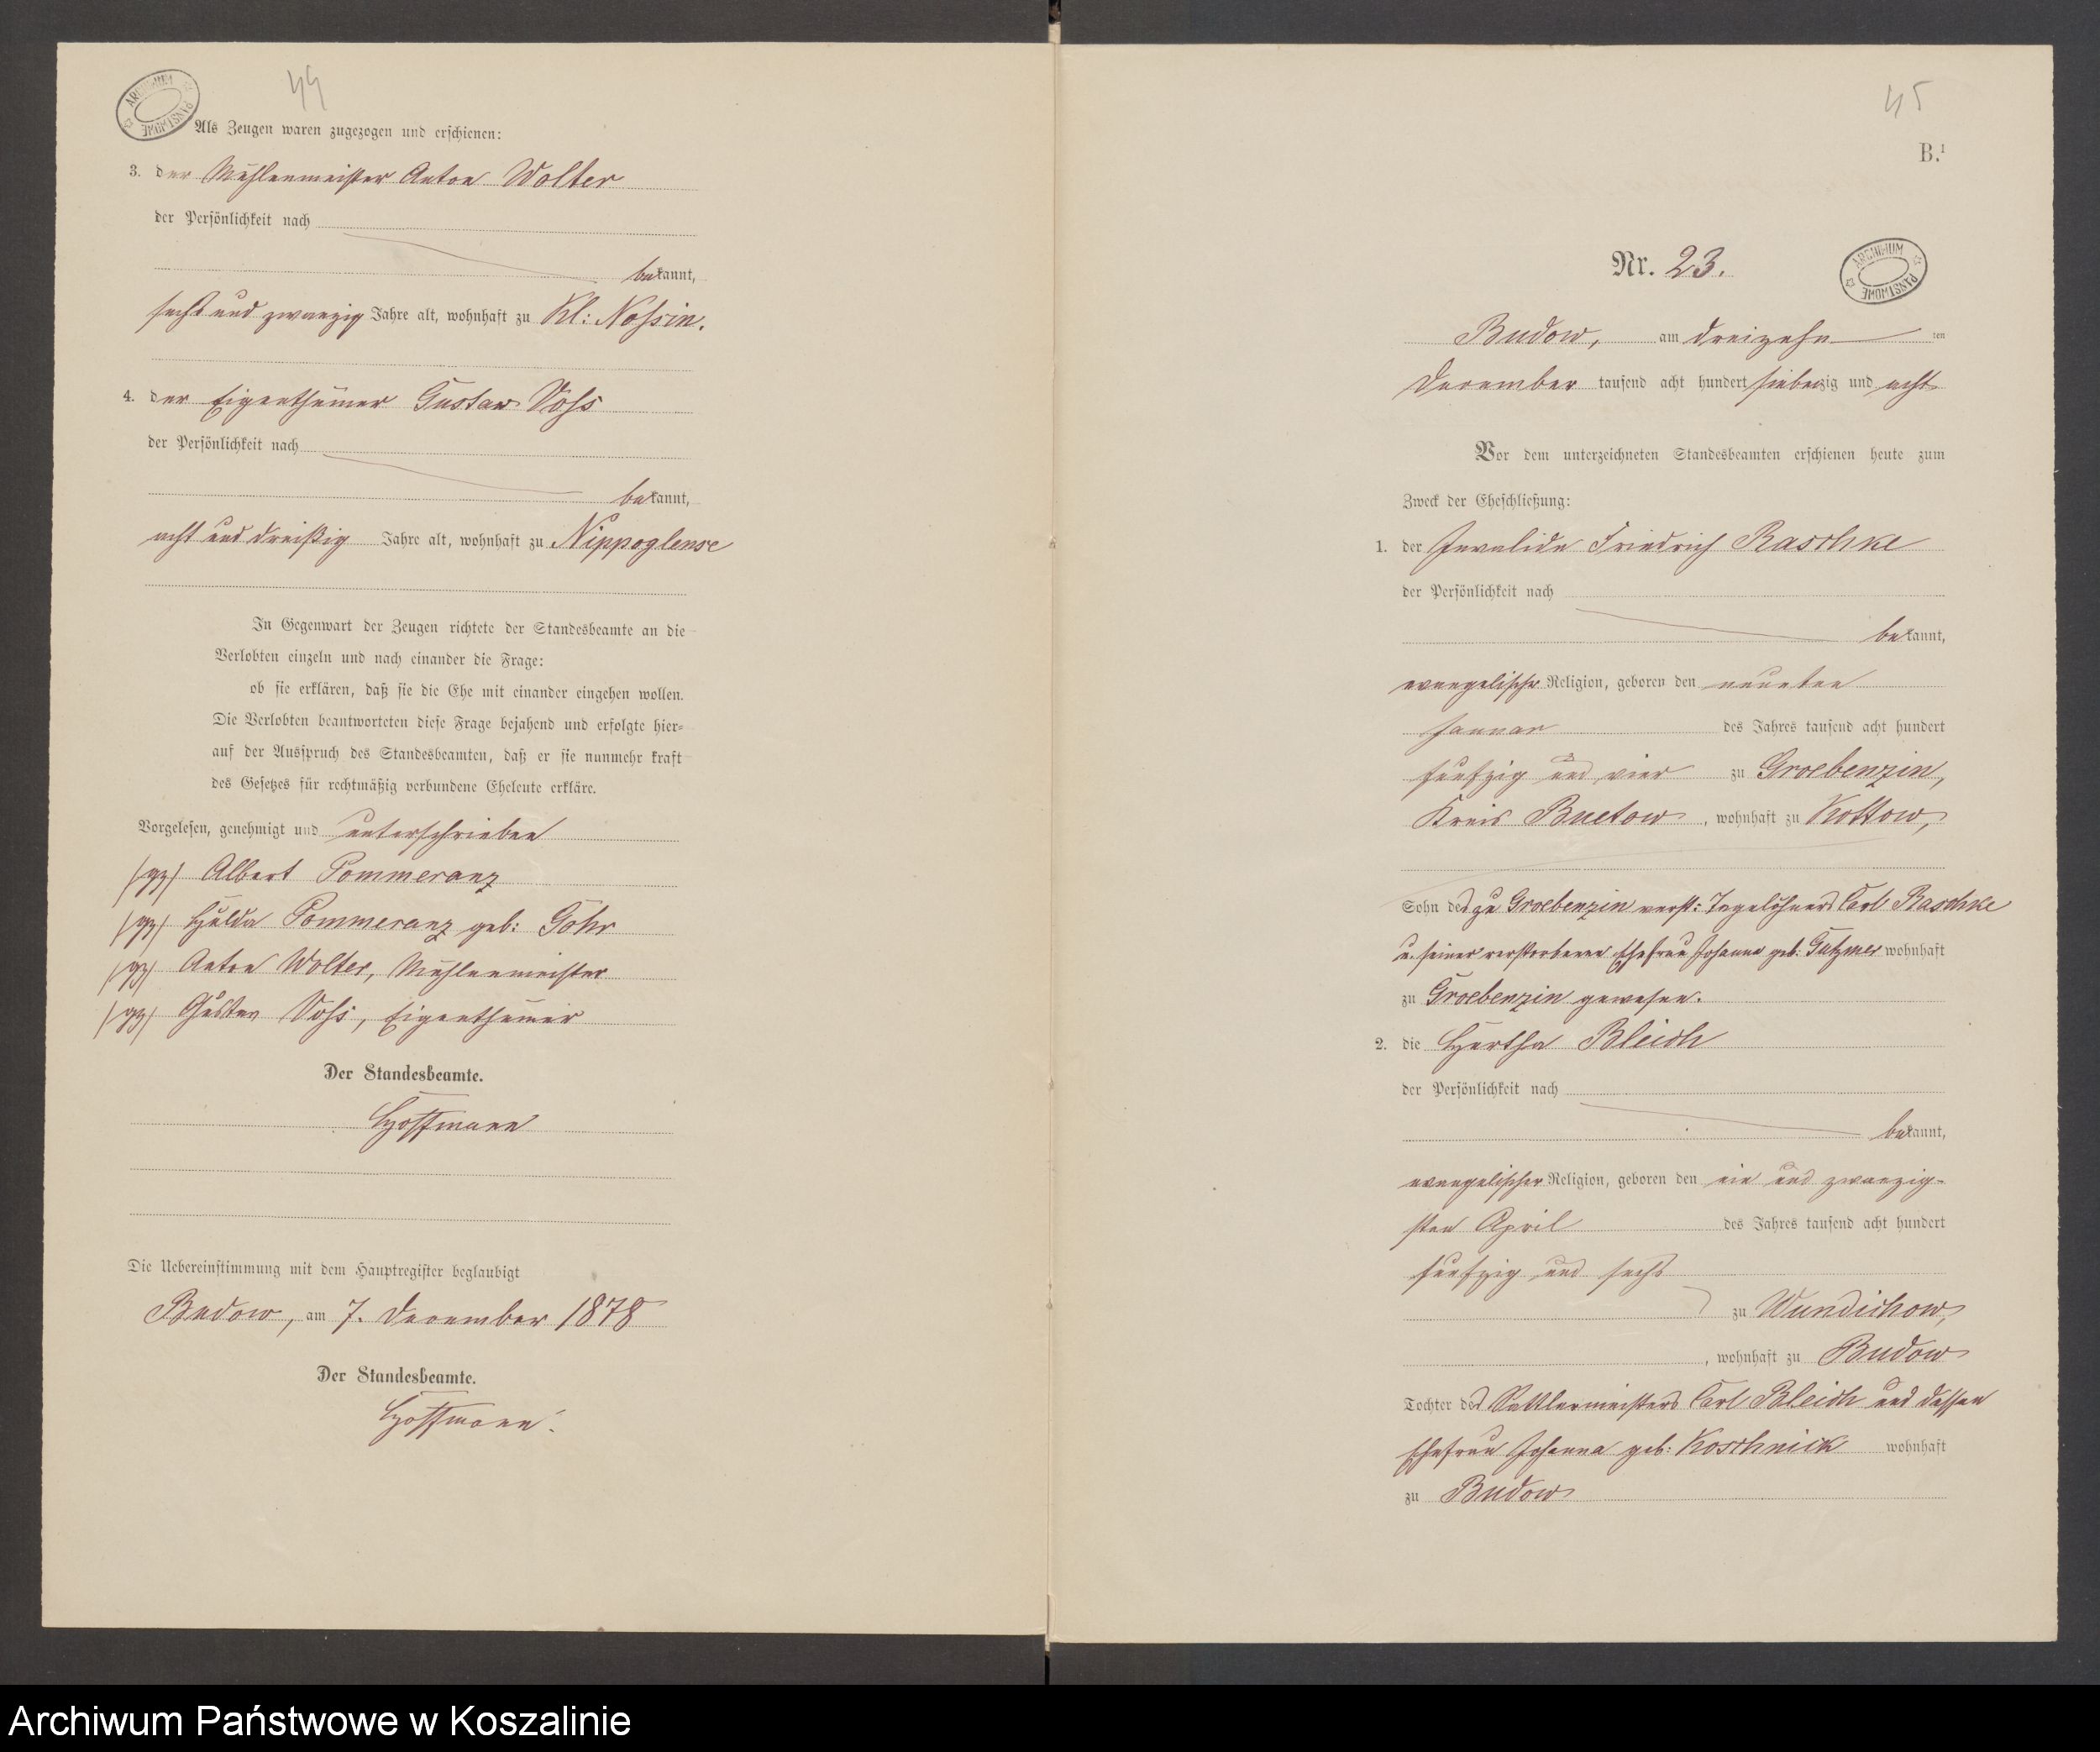 44
ARCHIWUM PAŃSTWOWE
Als Zeugen waren zugezogen und erschienen:
3. der Mühlenmeister Anton Wolter
der Persönlichkeit nach
bekannt,
sechs und zwanzig Jahre alt, wohnhaft zu Kl: Nossin.
4. der Eigenthümer Gustav Voss
der Persönlichkeit nach
bekannt,
acht und dreißig Jahre alt, wohnhaft zu Nippoglense
In Gegenwart der Zeugen richtete der Standesbeamte an die
Verlobten einzeln und nach einander die Frage:
ob sie erklären, daß sie die Ehe mit einander eingehen wollen.
Die Verlobten beantworteten diese Frage bejahend und erfolgte hier-
auf der Ausspruch des Standesbeamten, daß er sie nunmehr kraft
des Gesetzes für rechtmäßig verbundene Eheleute erkläre.
Vorgelesen, genehmigt und unterschrieben
(gz) Albert Pommeranz
(gz) Hulda Pommeranz geb: Göhr
(gz) Anton Wolter, Mühlenmeister
(gz) Gustav Voss, Eigenthümer
Der Standesbeamte.
Hoffmann
Die Uebereinstimmung mit dem Hauptregister beglaubigt
Budow, am 7. December 1878
Der Standesbeamte.
Hoffmann.
45
B.¹
Nr. 23.
ARCHIWUM PAŃSTWOWE
Budow, am dreizehn ten
December tausend acht hundert siebenzig und acht
Vor dem unterzeichneten Standesbeamten erschienen heute zum
Zweck der Eheschließung:
1. der Invalide Friedrich Raschke
der Persönlichkeit nach
bekannt,
evangelischer Religion, geboren den neunten
Januar des Jahres tausend acht hundert
fünfzig und vier zu Groebenzin,
Kreis Buetow, wohnhaft zu Kottow,
Sohn des zu Groebenzin verst: Tagelöhners Carl Raschke
u. seiner verstorbenen Ehefrau Johanna geb: Gutzmer wohnhaft
zu Groebenzin gewesen.
2. die Hertha Bleich
der Persönlichkeit nach
bekannt,
evangelischer Religion, geboren den ein und zwanzig-
sten April des Jahres tausend acht hundert
fünfzig und sechs
zu Wundichow,
, wohnhaft zu Budow
Tochter des Sattlermeisters Carl Bleich und dessen
Ehefrau Johanna geb: Koschnick wohnhaft
zu Budow
Archiwum Państwowe w Koszalinie